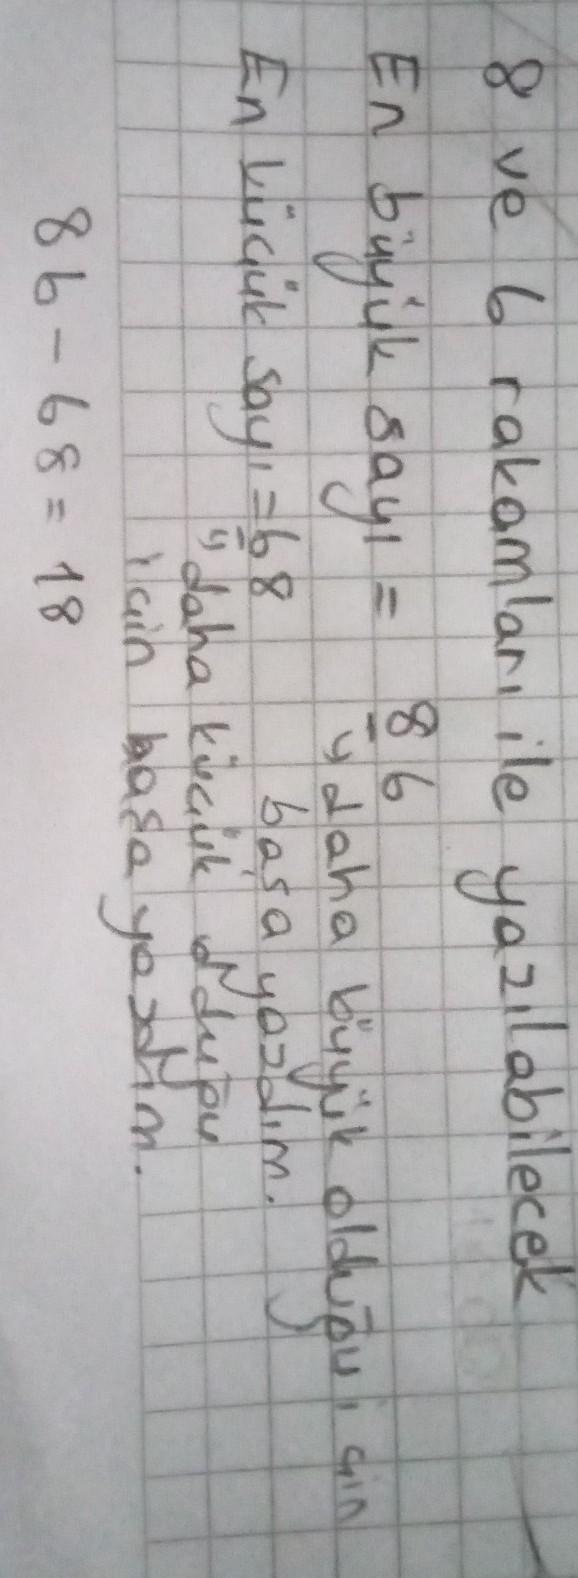 8 ve 6 rakamları ile yazılabilecek
En büyük sayı = 86
↳ daha büyük olduğu için
başa yazdım.
En küçük sayı = 68
↳ daha küçük olduğu
için başa yazdım.
86 - 68 = 18